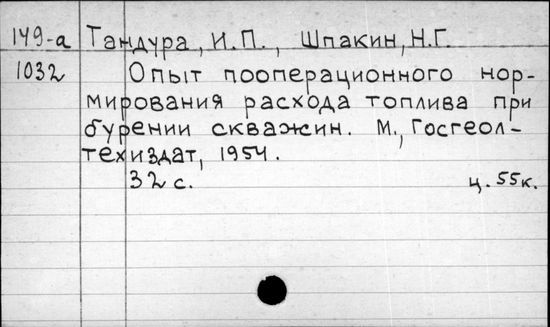 149-а Тандура, И.П., Шпакин, Н.Г.
1032 Опыт пооперационного нор-
мирования расхода топлива при
бурении скважин. М., Госгеол-
техиздат, 1954.
32 с. ц. 55к.